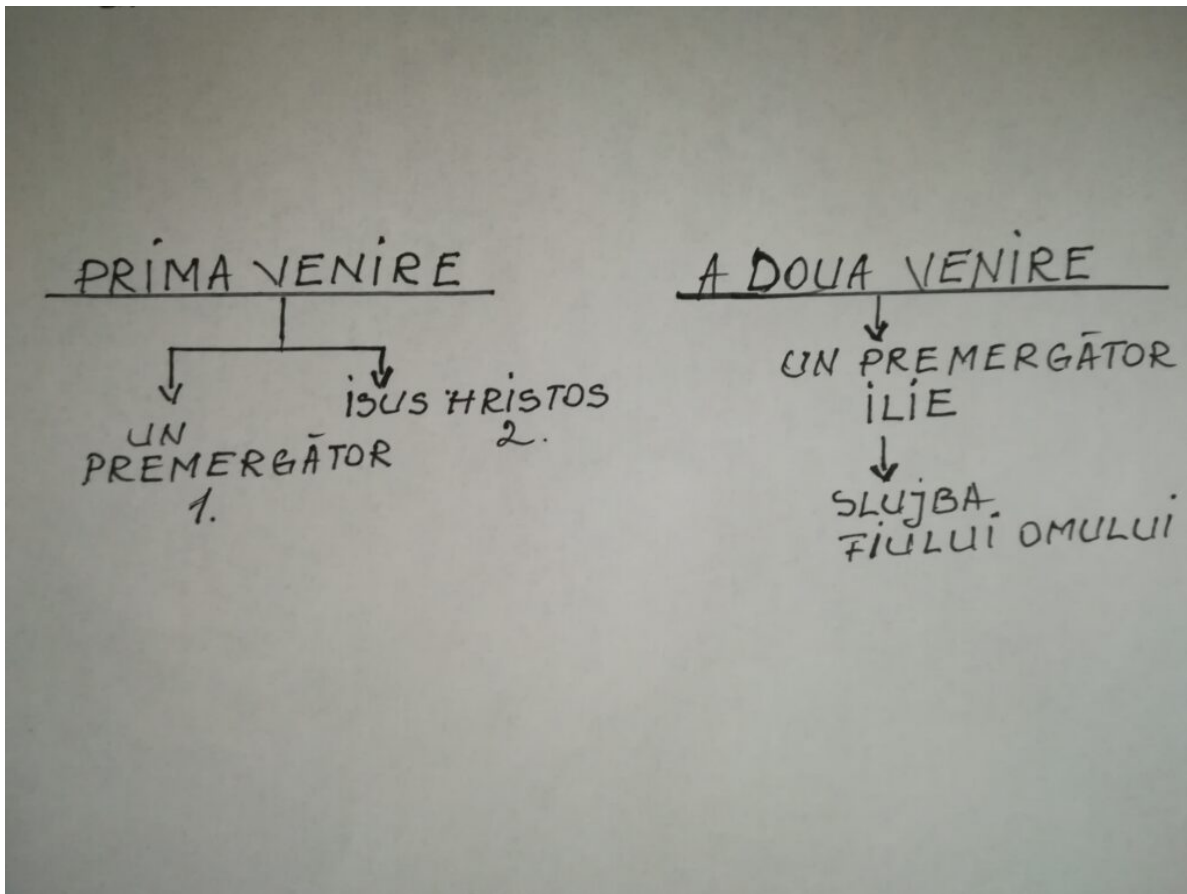 PRIMA VENIRE
UN
PREMERGĂTOR
1.
ISUS HRISTOS
2.
A DOUA VENIRE
UN PREMERGĂTOR
ILIE
SLUJBA
FIULUI OMULUI